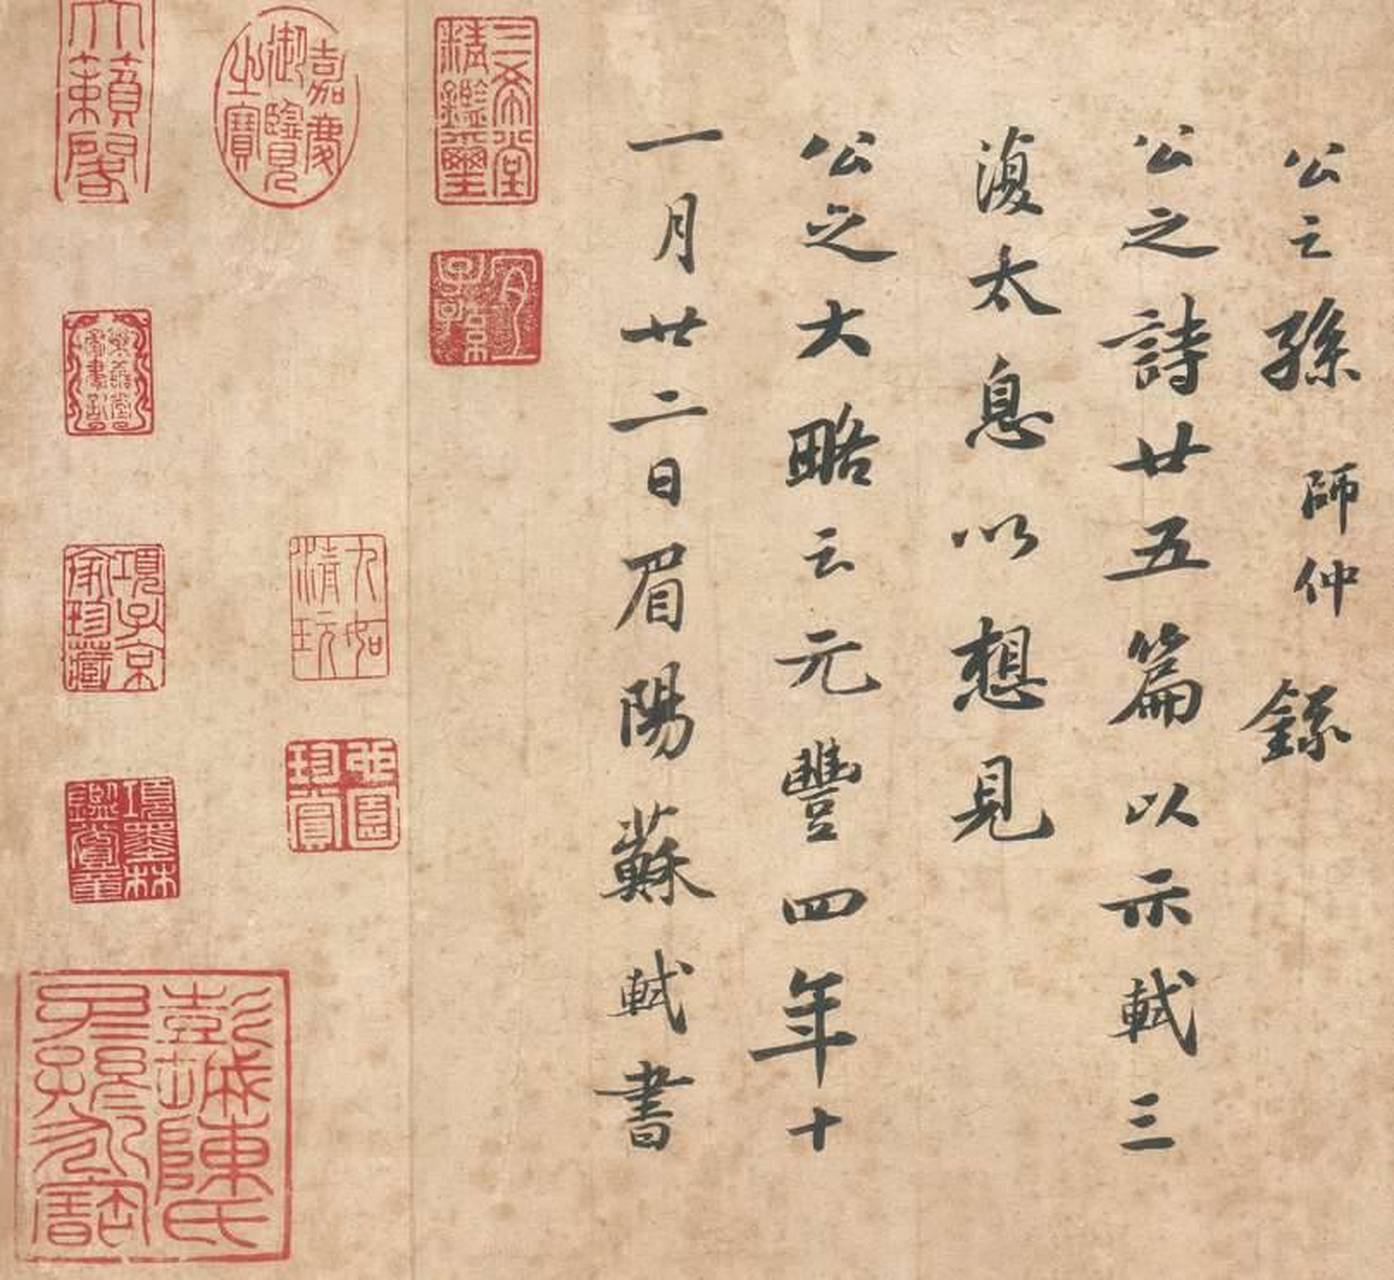 公之孫師仲錄
公之詩廿五篇以示軾三
復太息以想見
公之大略云元豐四年十
一月廿二日眉陽蘇軾書
三希堂精鑑璽
宜子孫
嘉慶御覽之寶
九如清玩
天籟閣
項子京家珍藏
項墨林鑑賞章